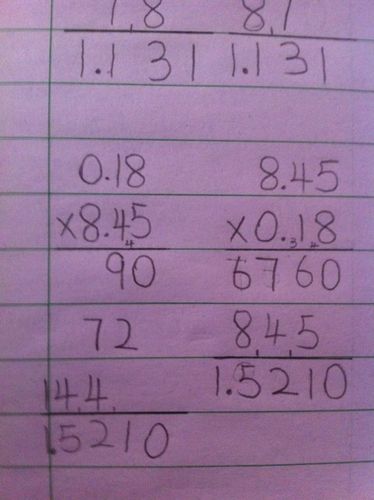 1,8 8,1
1.131 1.131
0.18 8.45
x8.45 x0.18
90 6760
72 845
144 1.5210
1.5210